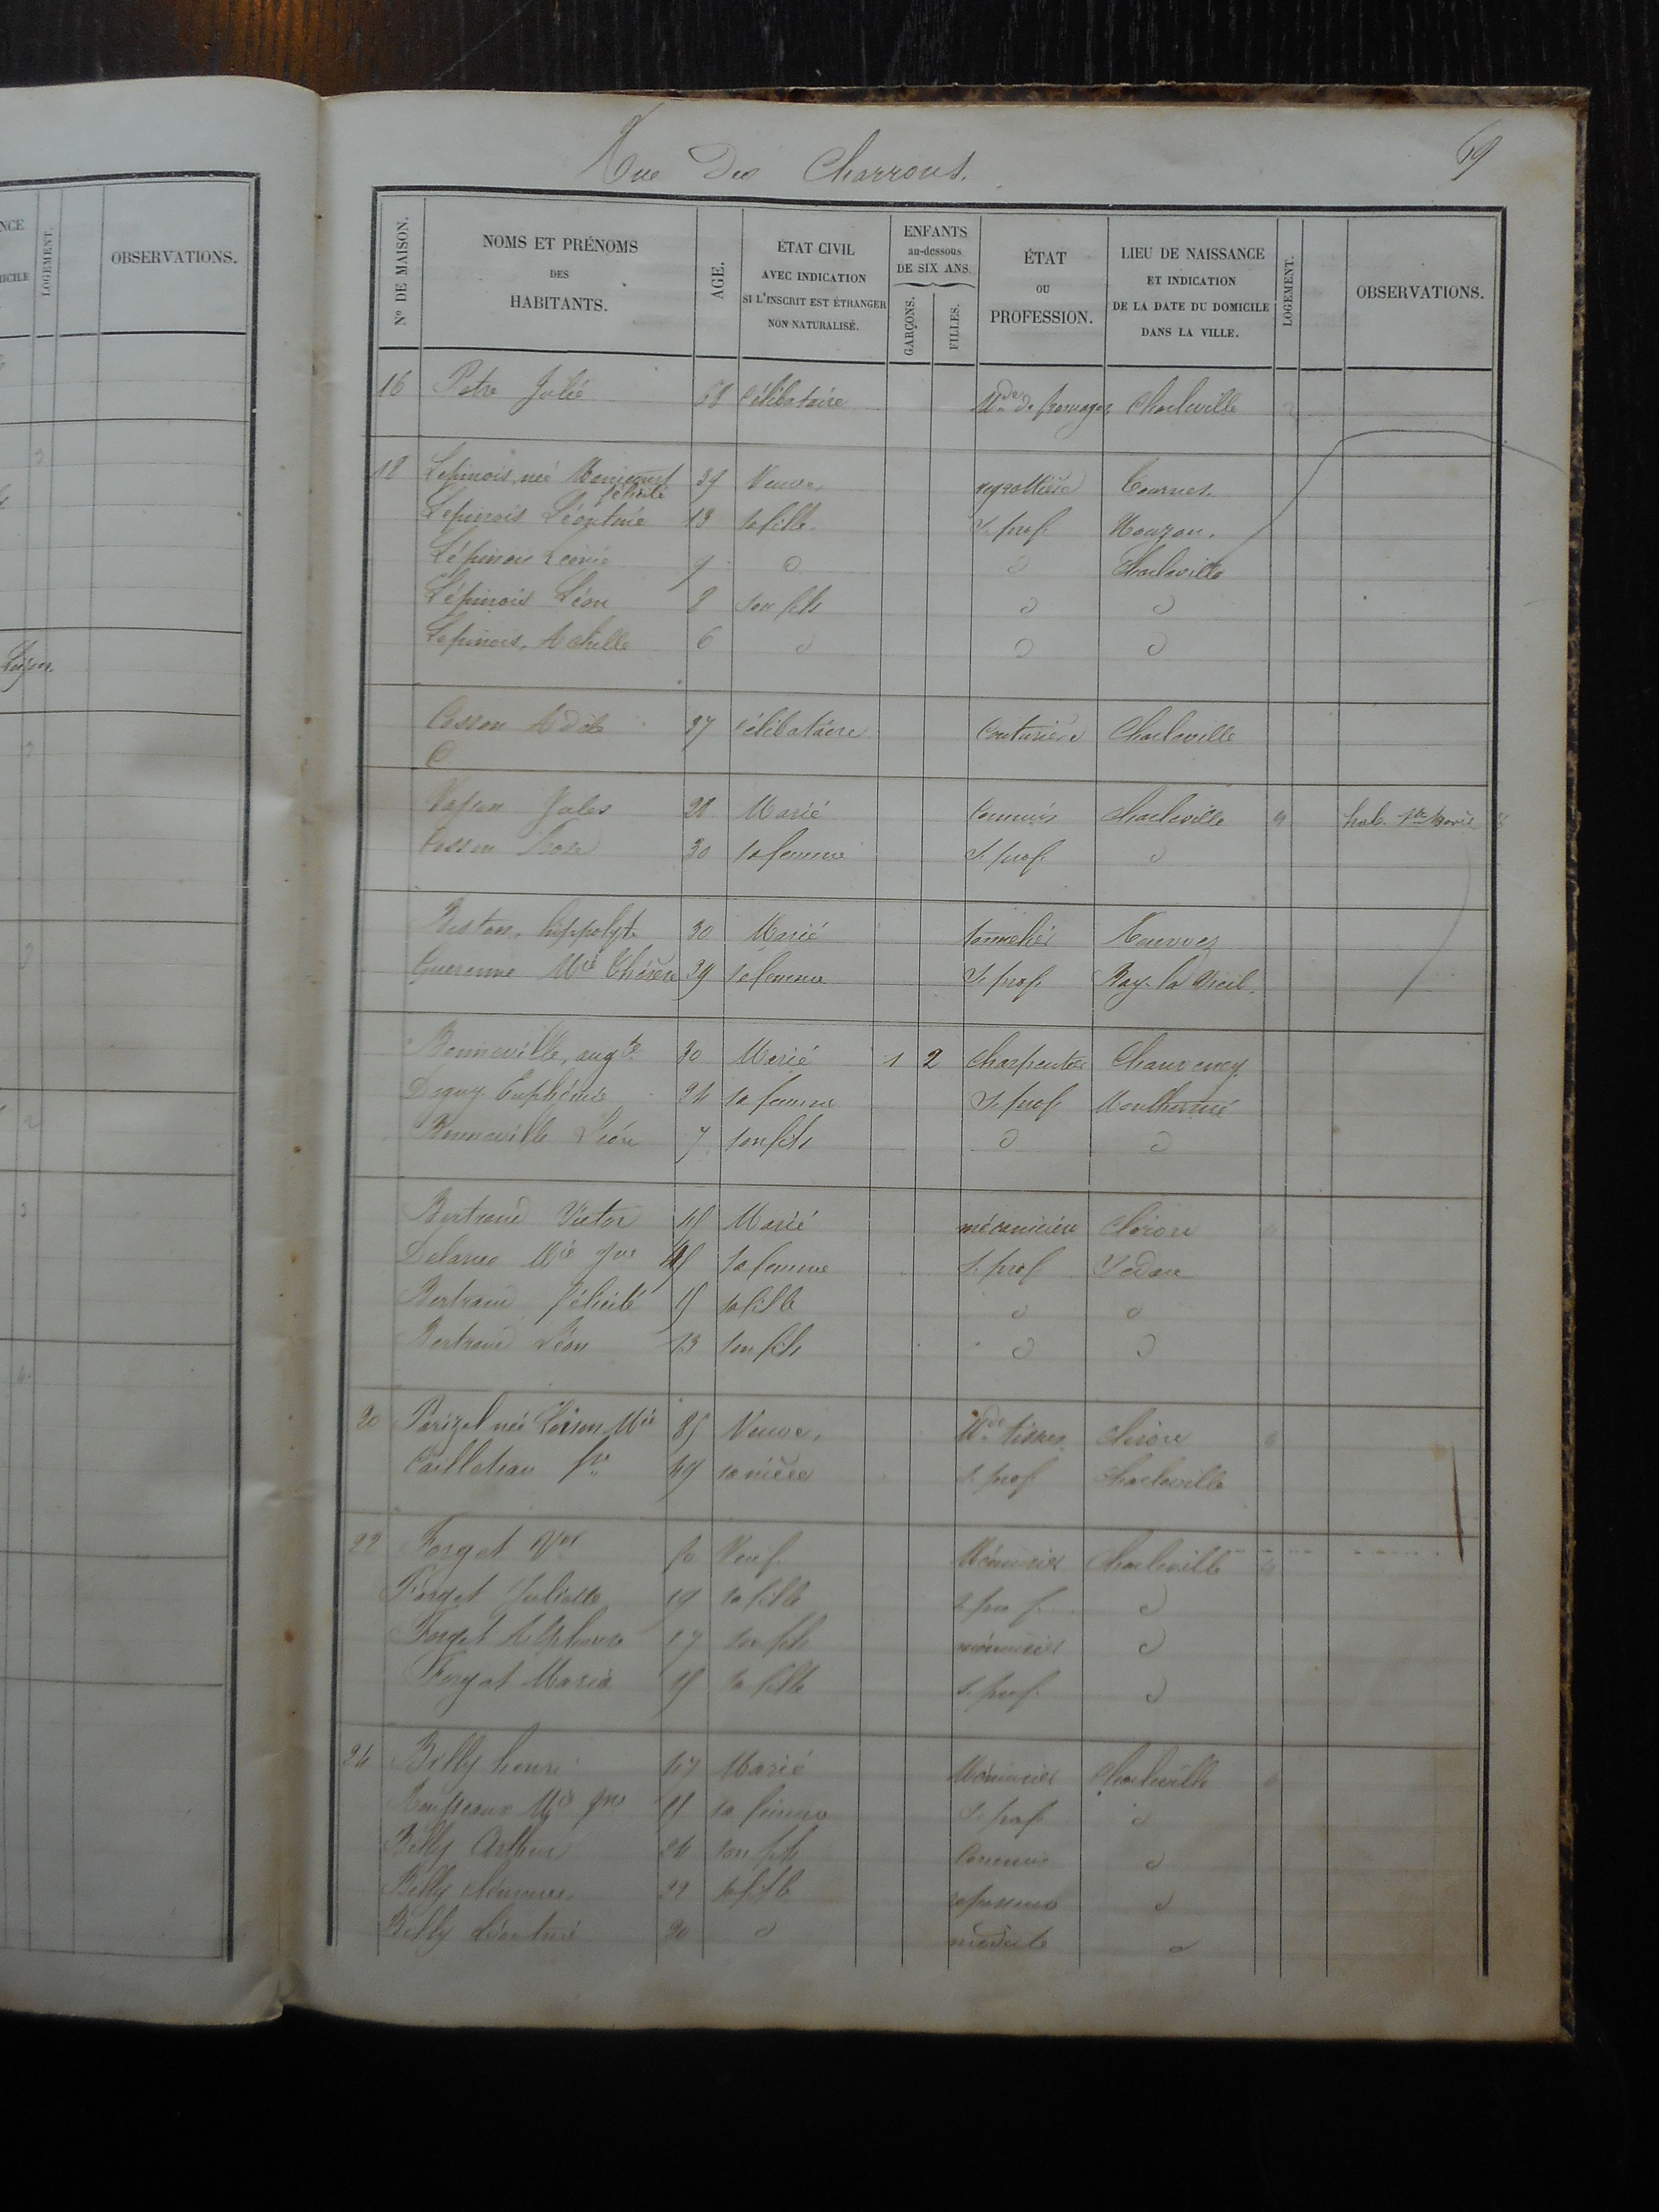 NCE
DICILE
LOGEMENT.
OBSERVATIONS.
Rue Des Charrons.
69
Nº DE MAISON.
NOMS ET PRÉNOMS
DES
HABITANTS.
AGE.
ÉTAT CIVIL
AVEC INDICATION
SI L'INSCRIT EST ÉTRANGER
NON NATURALISÉ.
ENFANTS
au-dessous
DE SIX ANS.
GARÇONS.
FILLES.
ÉTAT
OU
PROFESSION.
LIEU DE NAISSANCE
ET INDICATION
DE LA DATE DU DOMICILE
DANS LA VILLE.
LOGEMENT.
OBSERVATIONS.
16 Petre Julie 68 Célibataire Mde de fromages Charleville
18 Lepinois née 39 Veuve regrattière Tournes
félicité
Lepinois Léontine 13 sa fille S. prof. Mouzon.
Lépinois Léonie 9 d d Charleville
Lépinois Léon 8 son fils d d
Lepinois, Achille 6 d d d
Cosson Adèle 27 célibataire Couturière Charleville
C
Jules 28 Marié Commis Charleville hab. Ste Marie
Cosson Rose 30 sa femme S. prof. d
Biston, hippolyte 30 Marié
Mie Thérèse 29 sa femme S. prof.
Bonneville, augte 30 Marié 1 2 Charpentier Chauvency
Deguy Euphémie 24 sa femme S. prof. Monthermé
Bonneville Léon 7 son fils d d
Bertrand Victor 45 Marié mécanicien
Delarue Mie 45 sa femme S. prof Sedan
Bertrand félicité 15 sa fille d d
Bertrand Léon 13 son fils d d
20 Parizel née Mie 85 Veuve, Mde tissus
Cailleteau 49 sa nièce S. prof Charleville
22 Forget Vor 50 Veuf. Ménuisier Charleville
Forget Juliette 19 sa fille s. prof. d
Forget Alphonse 17 son fils ménuisier d
Forget Maria 15 sa fille s. prof. d
24 Billy henri 47 Marié Ménuisier Charleville
Mie 45 sa femme S. prof. d
Billy Arthur 24 son fils Commis d
Billy Clémence 22 sa fille repasseuse d
Billy Léontine 20 d modiste d